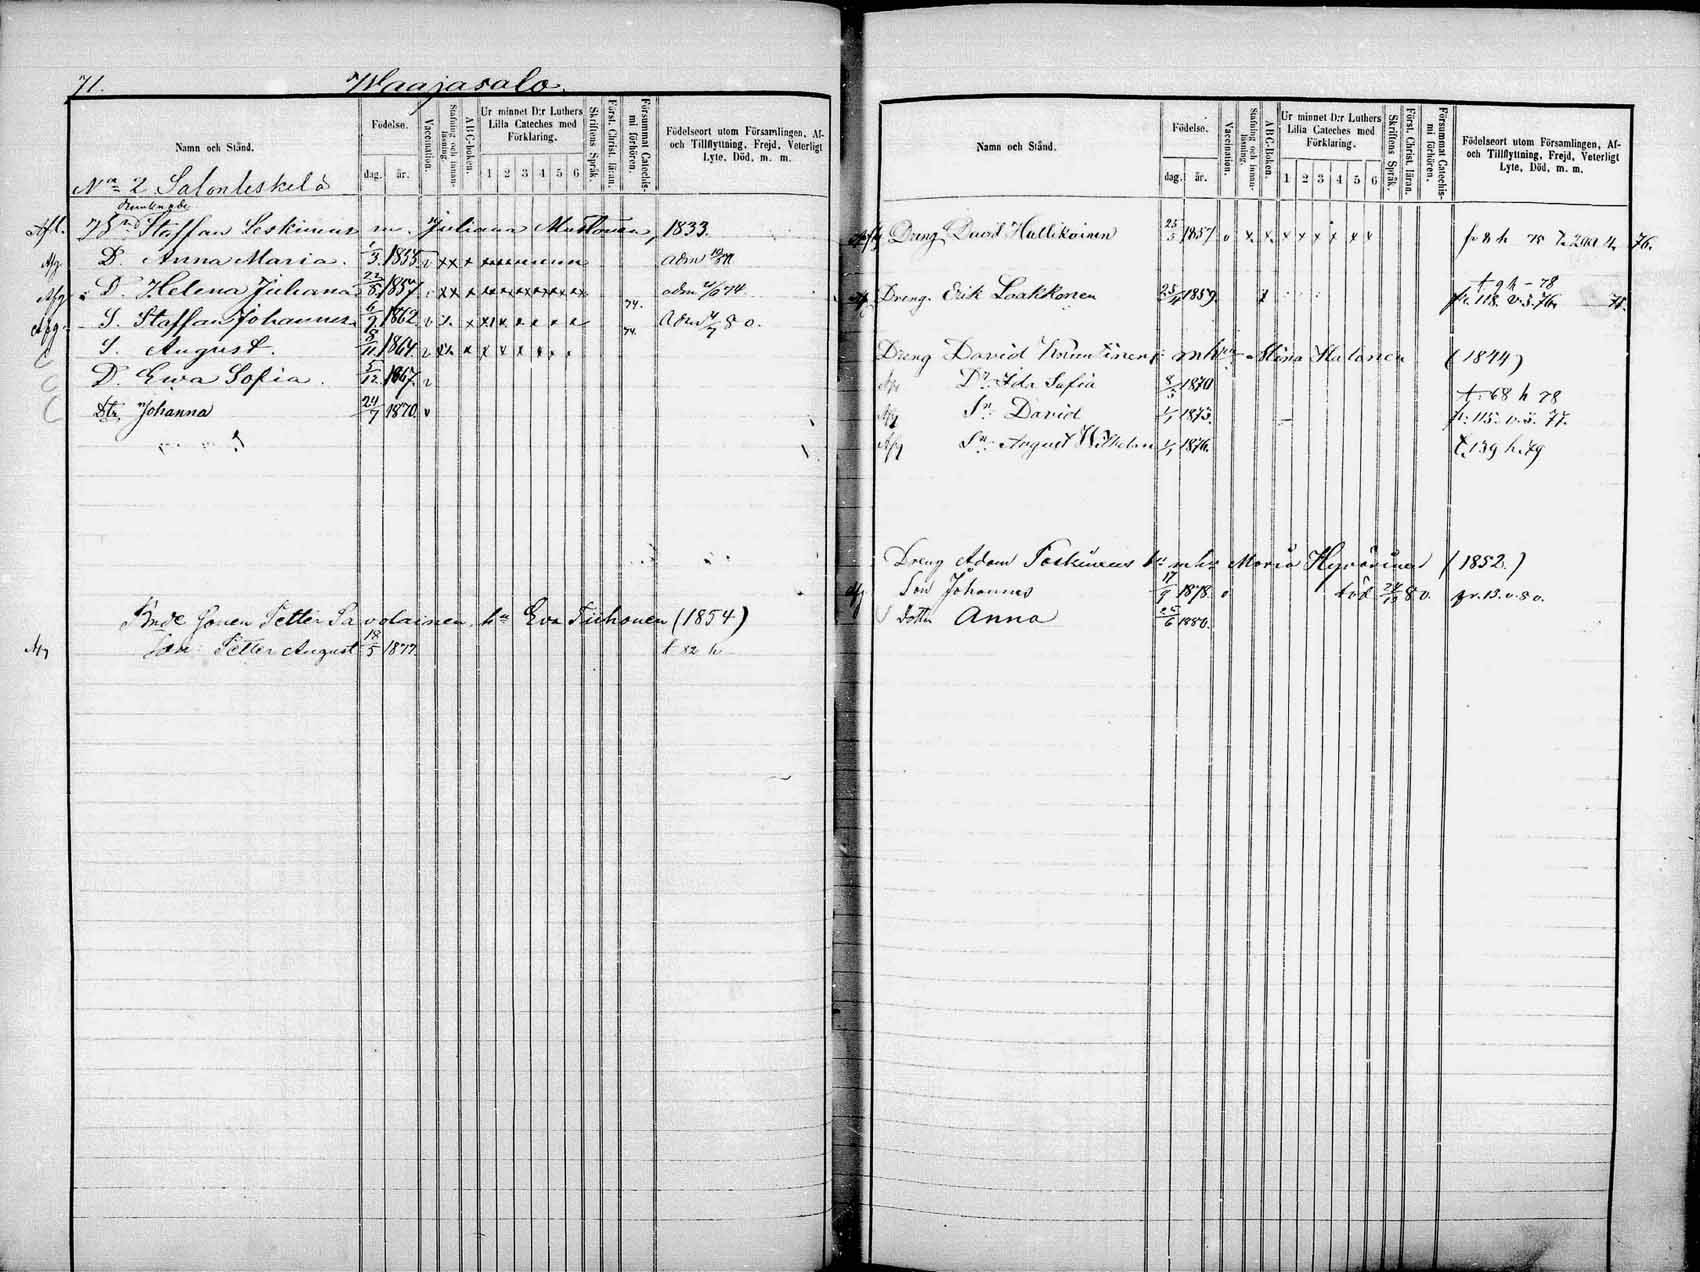 71. Waajasalo.
Namn och Stånd.
Födelse.
dag. år.
Vaccination.
Stafning och innanläsning.
ABC-boken.
Ur minnet D:r Luthers Lilla Cateches med Förklaring.
1 2 3 4 5 6
Skriftens Språk.
Först. Christ. läran.
Försummat Catechismi förhören.
Födelseort utom Församlingen, Af- och Tillflyttning, Frejd, Veterligt Lyte, Död, m. m.
No 2 Salonleskelä
Afl. Staffan Leskinens m. Juliana Mustonen, 1833.
Afg D. Anna Maria. 1/3 1855. v
Afg D. Helena Juliana 22/5 1857. adm 74
Afg S. Staffan Johannes 6/9 1862 v 74. Adm 4/7 80.
S. August. 8/11 1864 v 74.
D. Ewa Sofia. 5/12 1867. v
Dtr. Johanna 24/7 1870. v
Sonen Petter Savolainen, hu Eva Tiihonen (1854)
Afg Son Petter August 18/5 1877. t 82 h
Namn och Stånd.
Födelse.
dag. år.
Vaccination.
Stafning och innanläsning.
ABC-Boken.
Ur minnet D:r Luthers Lilla Cateches med Förklaring.
1 2 3 4 5 6
Skriftens Språk.
Först. Christ. läran.
Försummat Catechismi förhören.
Födelseort utom Församlingen, Af- och Tillflyttning, Frejd, Veterligt Lyte, Död, m. m.
Dreng David Hullikoinen 25/5 1857 v 76.
Dreng. Erik Laakkonen 1859. t 9 h - 78
fr. 118 v. s. 76
Dreng David mhu Mina Halonen (1844)
Afg Dr. Ida Sofia 8/5 1870 t. 68 h 78
Afg Sn. David 1/1 1873. fr. 115. v. s. 77.
Afg Sn. August Wilhelm 1/1 1876. t. 139 h. 79
Dreng Adam Toskinens mhu Maria Hyvärinen (1852.)
Afg Son Johannes 17/9 1878. v död 80. fr. 13. v. 80.
Dotter Anna 1880.